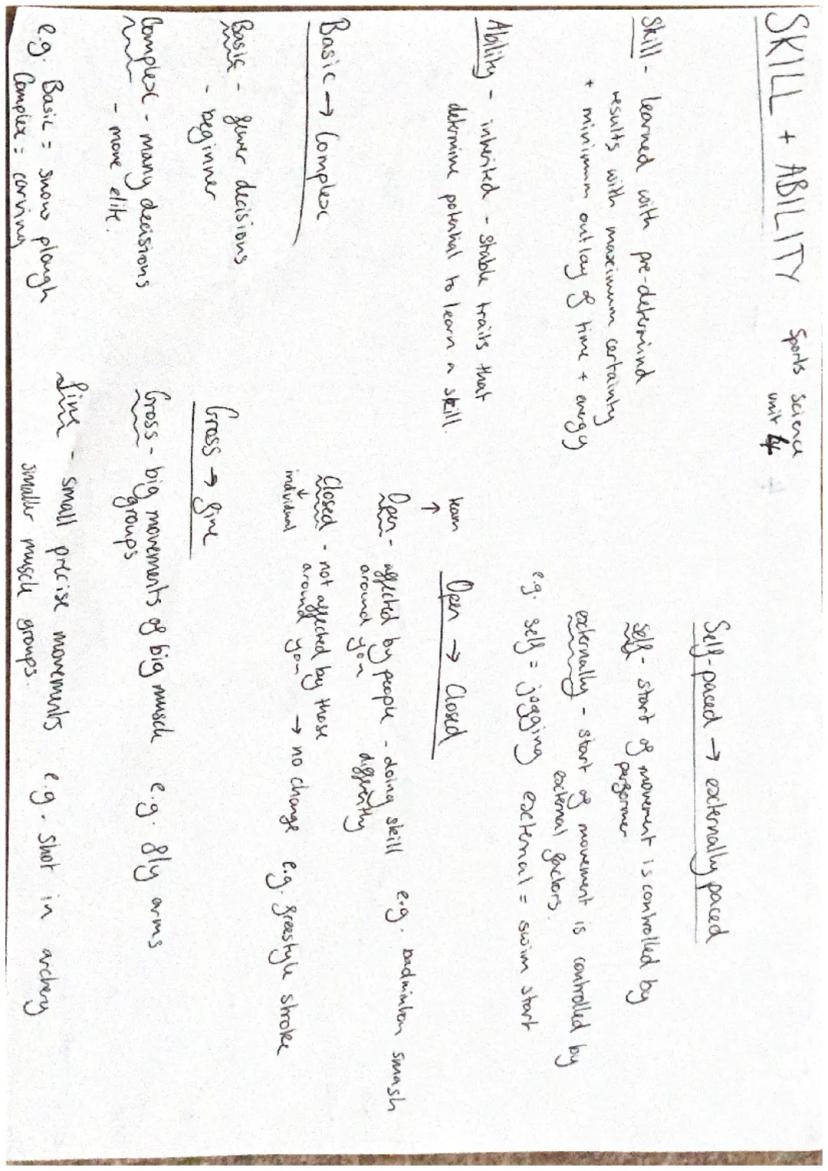 SKILL + ABILITY
Sports science
unit 4
Skill - learned with pre-determind
results with maximum certainty
+ minimum outlay of time + energy
Ability - inherited - stable traits that
determine potential to learn a skill.
Basic → Complex
Basic - fewer decisions
- beginner
Complex - many decisions
- more elite.
e.g. Basic = snow plough
Complex = carving
Self-paced → externally paced
Self - start of movement is controlled by
performer
externally - start of movement is controlled by
external factors.
e.g. self = jogging external = swim start
team
↑
Open → Closed
Open - affected by people - doing skill e.g. badminton smash
around you differently
Closed - not affected by those
↓
individual
around you → no change e.g. freestyle stroke
Gross → fine
Gross - big movements of big muscle e.g. fly arms
groups
fine - small precise movements e.g. shot in archery
smaller muscle groups.